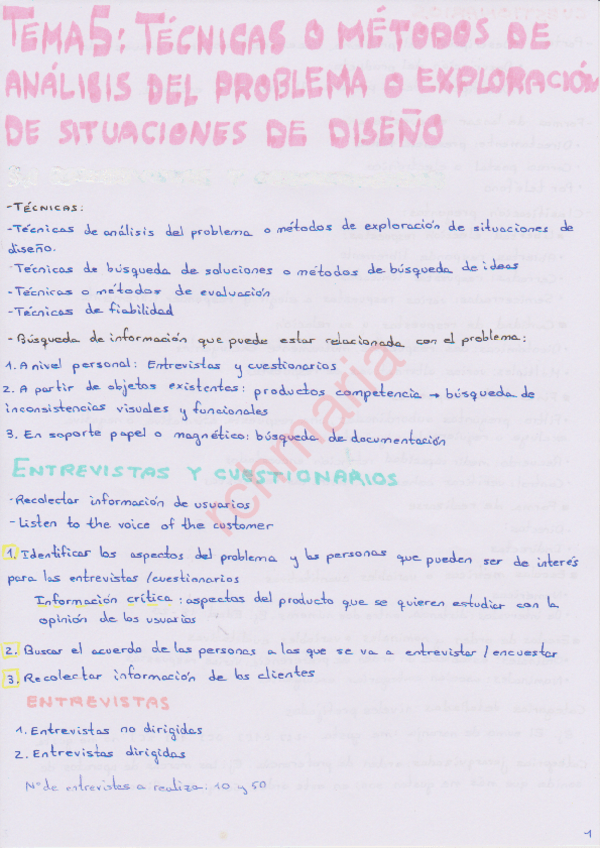 TEMA 5: TÉCNICAS O MÉTODOS DE
ANÁLISIS DEL PROBLEMA O EXPLORACIÓN
DE SITUACIONES DE DISEÑO
- TÉCNICAS:
- Técnicas de análisis del problema o métodos de exploración de situaciones de
diseño.
- Técnicas de búsqueda de soluciones o métodos de búsqueda de ideas
- Técnicas o métodos de evaluación
- Técnicas de fiabilidad
- Búsqueda de información que puede estar relacionada con el problema:
1. A nivel personal: Entrevistas y cuestionarios
2. A partir de objetos existentes: productos competencia → búsqueda de
inconsistencias visuales y funcionales
3. En soporte papel o magnético: búsqueda de documentación
rchmaria
ENTREVISTAS Y CUESTIONARIOS
- Recolectar información de usuarios
- Listen to the voice of the customer
1. Identificar los aspectos del problema y las personas que pueden ser de interés
para las entrevistas/cuestionarios
Información crítica: aspectos del producto que se quieren estudiar con la
opinión de los usuarios
2. Buscar el acuerdo de las personas a las que se va a entrevistar/encuestar
3. Recolectar información de los clientes
ENTREVISTAS
1. Entrevistas no dirigidas
2. Entrevistas dirigidas
Nº de entrevistas a realizar: 10 y 50
1